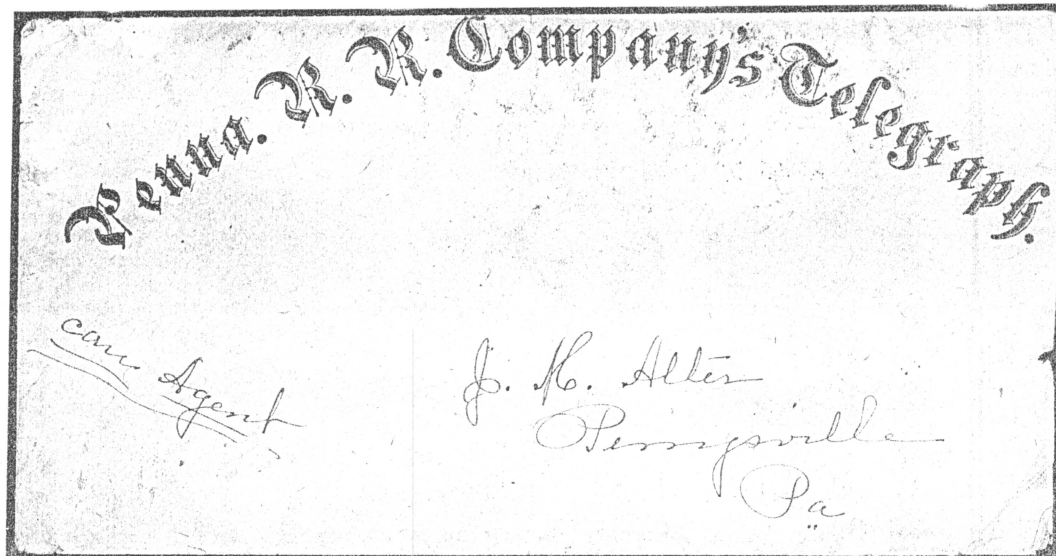 Penna. R. R. Company's Telegraph.
care Agent
J. M. Alter
Perrysville
Pa